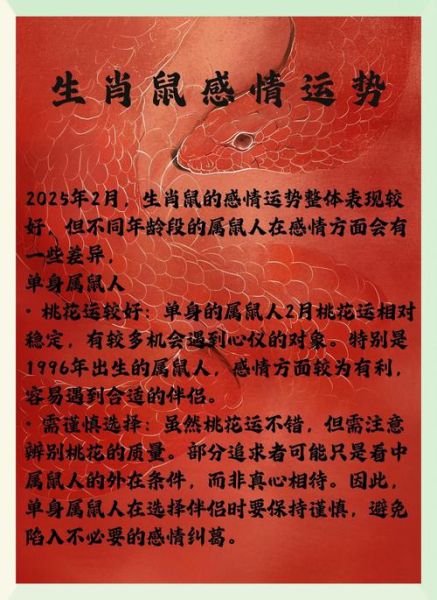 生肖鼠感情运势
2025年2月，生肖鼠的感情运势整体表现较
好，但不同年龄段的属鼠人在感情方面会有
一些差异，
单身属鼠人
· 桃花运较好：单身的属鼠人2月桃花运相对
稳定，有较多机会遇到心仪的对象。特别是
1996年出生的属鼠人，感情方面较为有利，
容易遇到合适的伴侣。
· 需谨慎选择：虽然桃花运不错，但需注意
辨别桃花的质量。部分追求者可能只是看中
属鼠人的外在条件，而非真心相待。因此，
单身属鼠人在选择伴侣时要保持谨慎，避免
陷入不必要的感情纠葛。